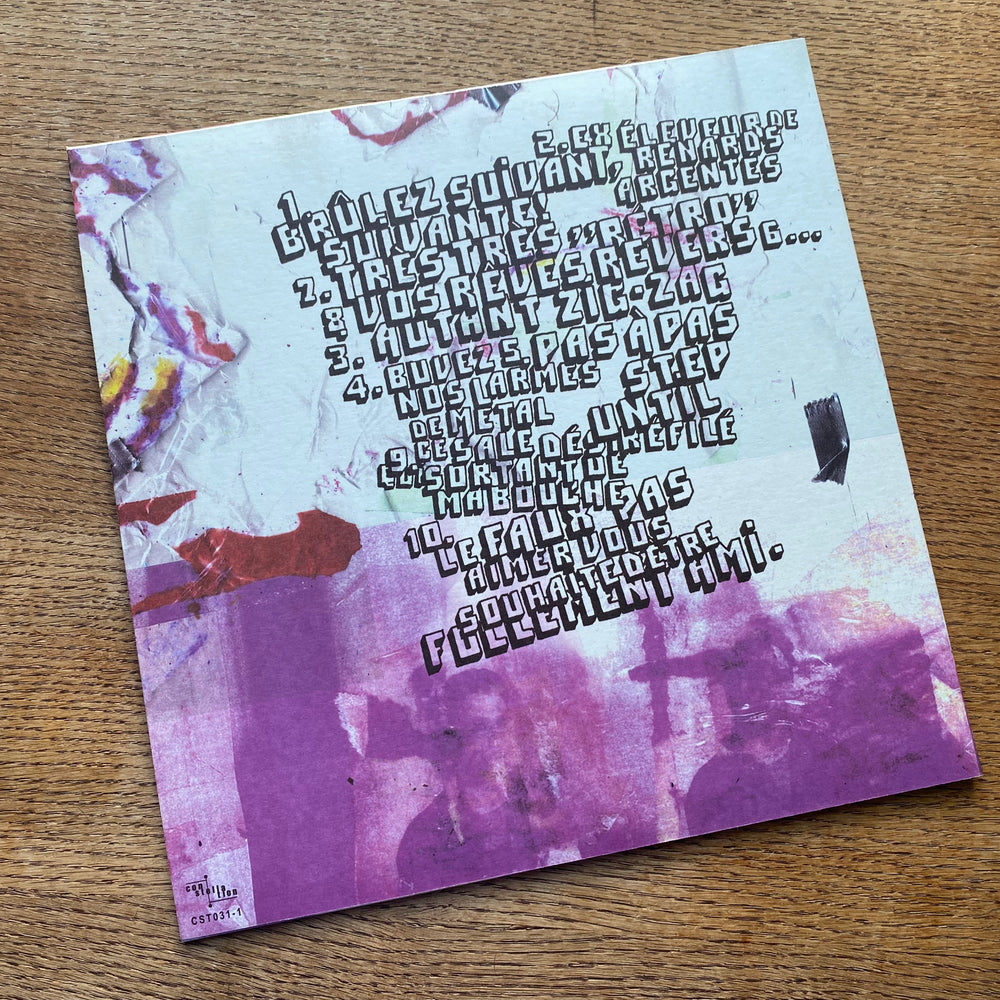 2. EX ÉLEVEUR DE
RENARDS
ARGENTÉS
1.
BRÛLEZ SUIVANT,
SUIVANTE!
7. TRES TRÈS "RÉTRO"
8. VOS RÊVES REVERS 6...
3. AUTANT ZIG-ZAG
4. BUVEZ 5. PAS À PAS
NOS LARMES STEP
DE MÉTAL UNTIL
9. CE SALE DÉS KÉFILÉ
SORTANT DE
MA BOUCHE
10. LE FAUX GAS
AIMER VOUS
SOUHAITE D'ÊTRE
FOLLEMENT AMI.
constellation
CST031-1